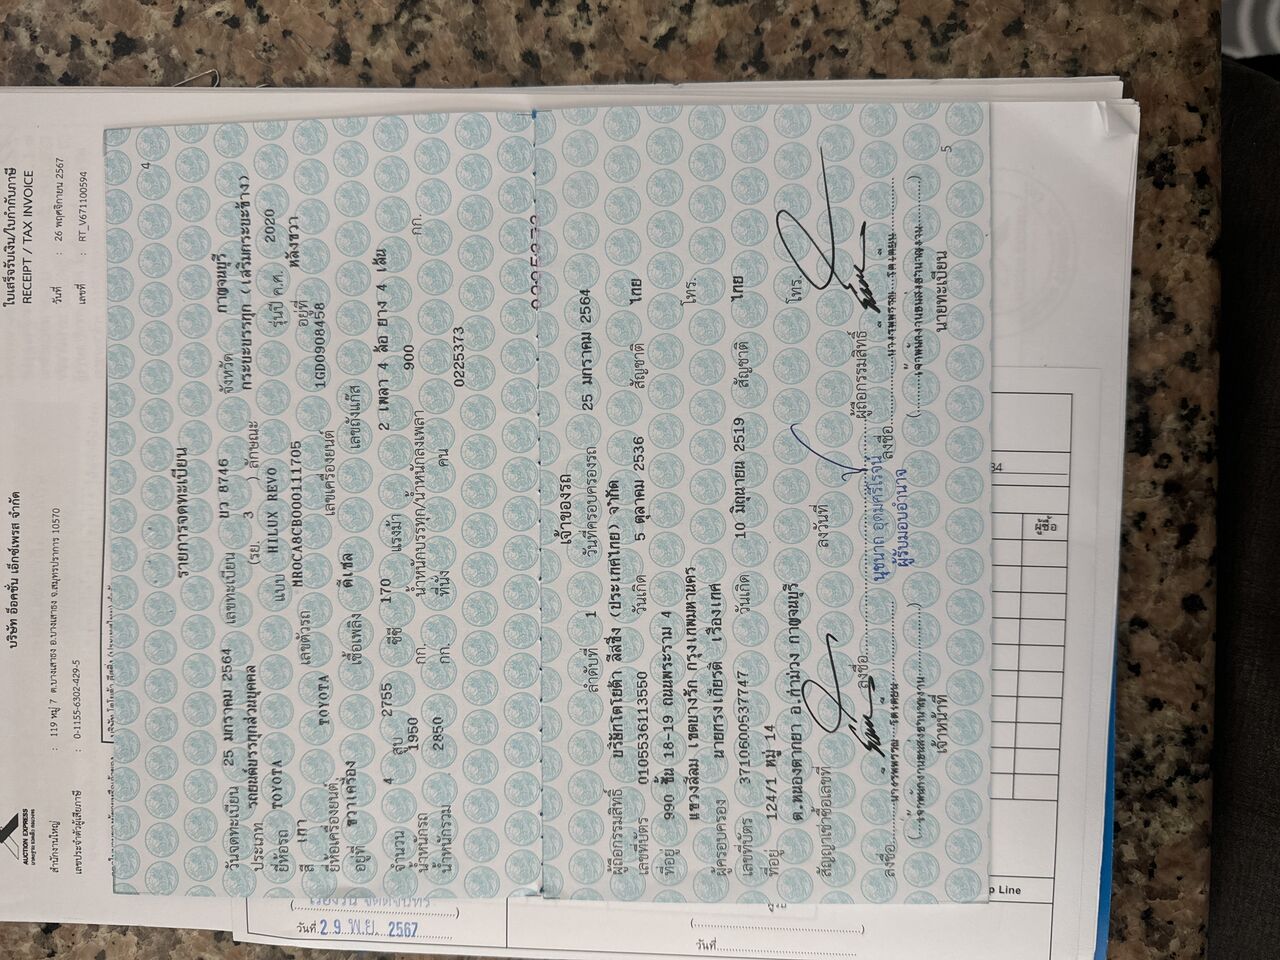 ใบเสร็จรับเงิน/ใบกำกับภาษี
RECEIPT / TAX INVOICE
บริษัท อ๊อคชั่น เอ็กซ์เพรส จำกัด
AUCTION EXPRESS
สำนักงานใหญ่ : 119 หมู่ 7 ต.บางเสาธง อ.บางเสาธง จ.สมุทรปราการ 10570
เลขประจำตัวผู้เสียภาษี : 0-1155-6302-429-5
วันที่ : 26 พฤศจิกายน 2567
เลขที่ : RT_V671100594
4
รายการจดทะเบียน
วันจดทะเบียน 25 มกราคม 2564 เลขทะเบียน ยว 8746 จังหวัด กาญจนบุรี
ประเภท รถยนต์บรรทุกส่วนบุคคล (รย. 3 ) ลักษณะ กระบะบรรทุก (เสริมกระบะข้าง)
ยี่ห้อรถ TOYOTA แบบ HILUX REVO รุ่นปี ค.ศ. 2020
สี เทา เลขตัวรถ MR0CA8CB000111705 อยู่ที่ หลังขวา
ยี่ห้อเครื่องยนต์ TOYOTA เลขเครื่องยนต์ 1GD0908458
อยู่ที่ ขวาเครื่อง เชื้อเพลิง ดีเซล เลขถังแก๊ส
จำนวน 4 สูบ 2755 ซีซี 170 แรงม้า 2 เพลา 4 ล้อ ยาง 4 เส้น
น้ำหนักรถ 1950 กก. น้ำหนักบรรทุก/น้ำหนักลงเพลา 900 กก.
น้ำหนักรวม 2850 กก. ที่นั่ง คน
0225373
เจ้าของรถ
ลำดับที่ 1 วันที่ครอบครองรถ 25 มกราคม 2564
ผู้ถือกรรมสิทธิ์ บริษัทโตโยต้า ลีสซิ่ง (ประเทศไทย) จำกัด
เลขที่บัตร 0105536113550 วันเกิด 5 ตุลาคม 2536 สัญชาติ ไทย
ที่อยู่ 990 ชั้น 18-19 ถนนพระราม 4
แขวงสีลม เขตบางรัก กรุงเทพมหานคร โทร.
ผู้ครอบครอง นายทรงเกียรติ เรืองเกศ
เลขที่บัตร 3710600537747 วันเกิด 10 มิถุนายน 2519 สัญชาติ ไทย
ที่อยู่ 124/1 หมู่ 14
ต.หนองตากยา อ.ท่าม่วง กาญจนบุรี โทร.
สัญญาเช่าซื้อเลขที่ ลงวันที่ ผู้ถือกรรมสิทธิ์
ลงชื่อ
นุชนาถ อุดมศรีโรจน์
ผู้รับมอบอำนาจ
ลงชื่อ ลงชื่อ
เจ้าหน้าที่ นายทะเบียน
5
วันที่ 29 พ.ย. 2567
วันที่